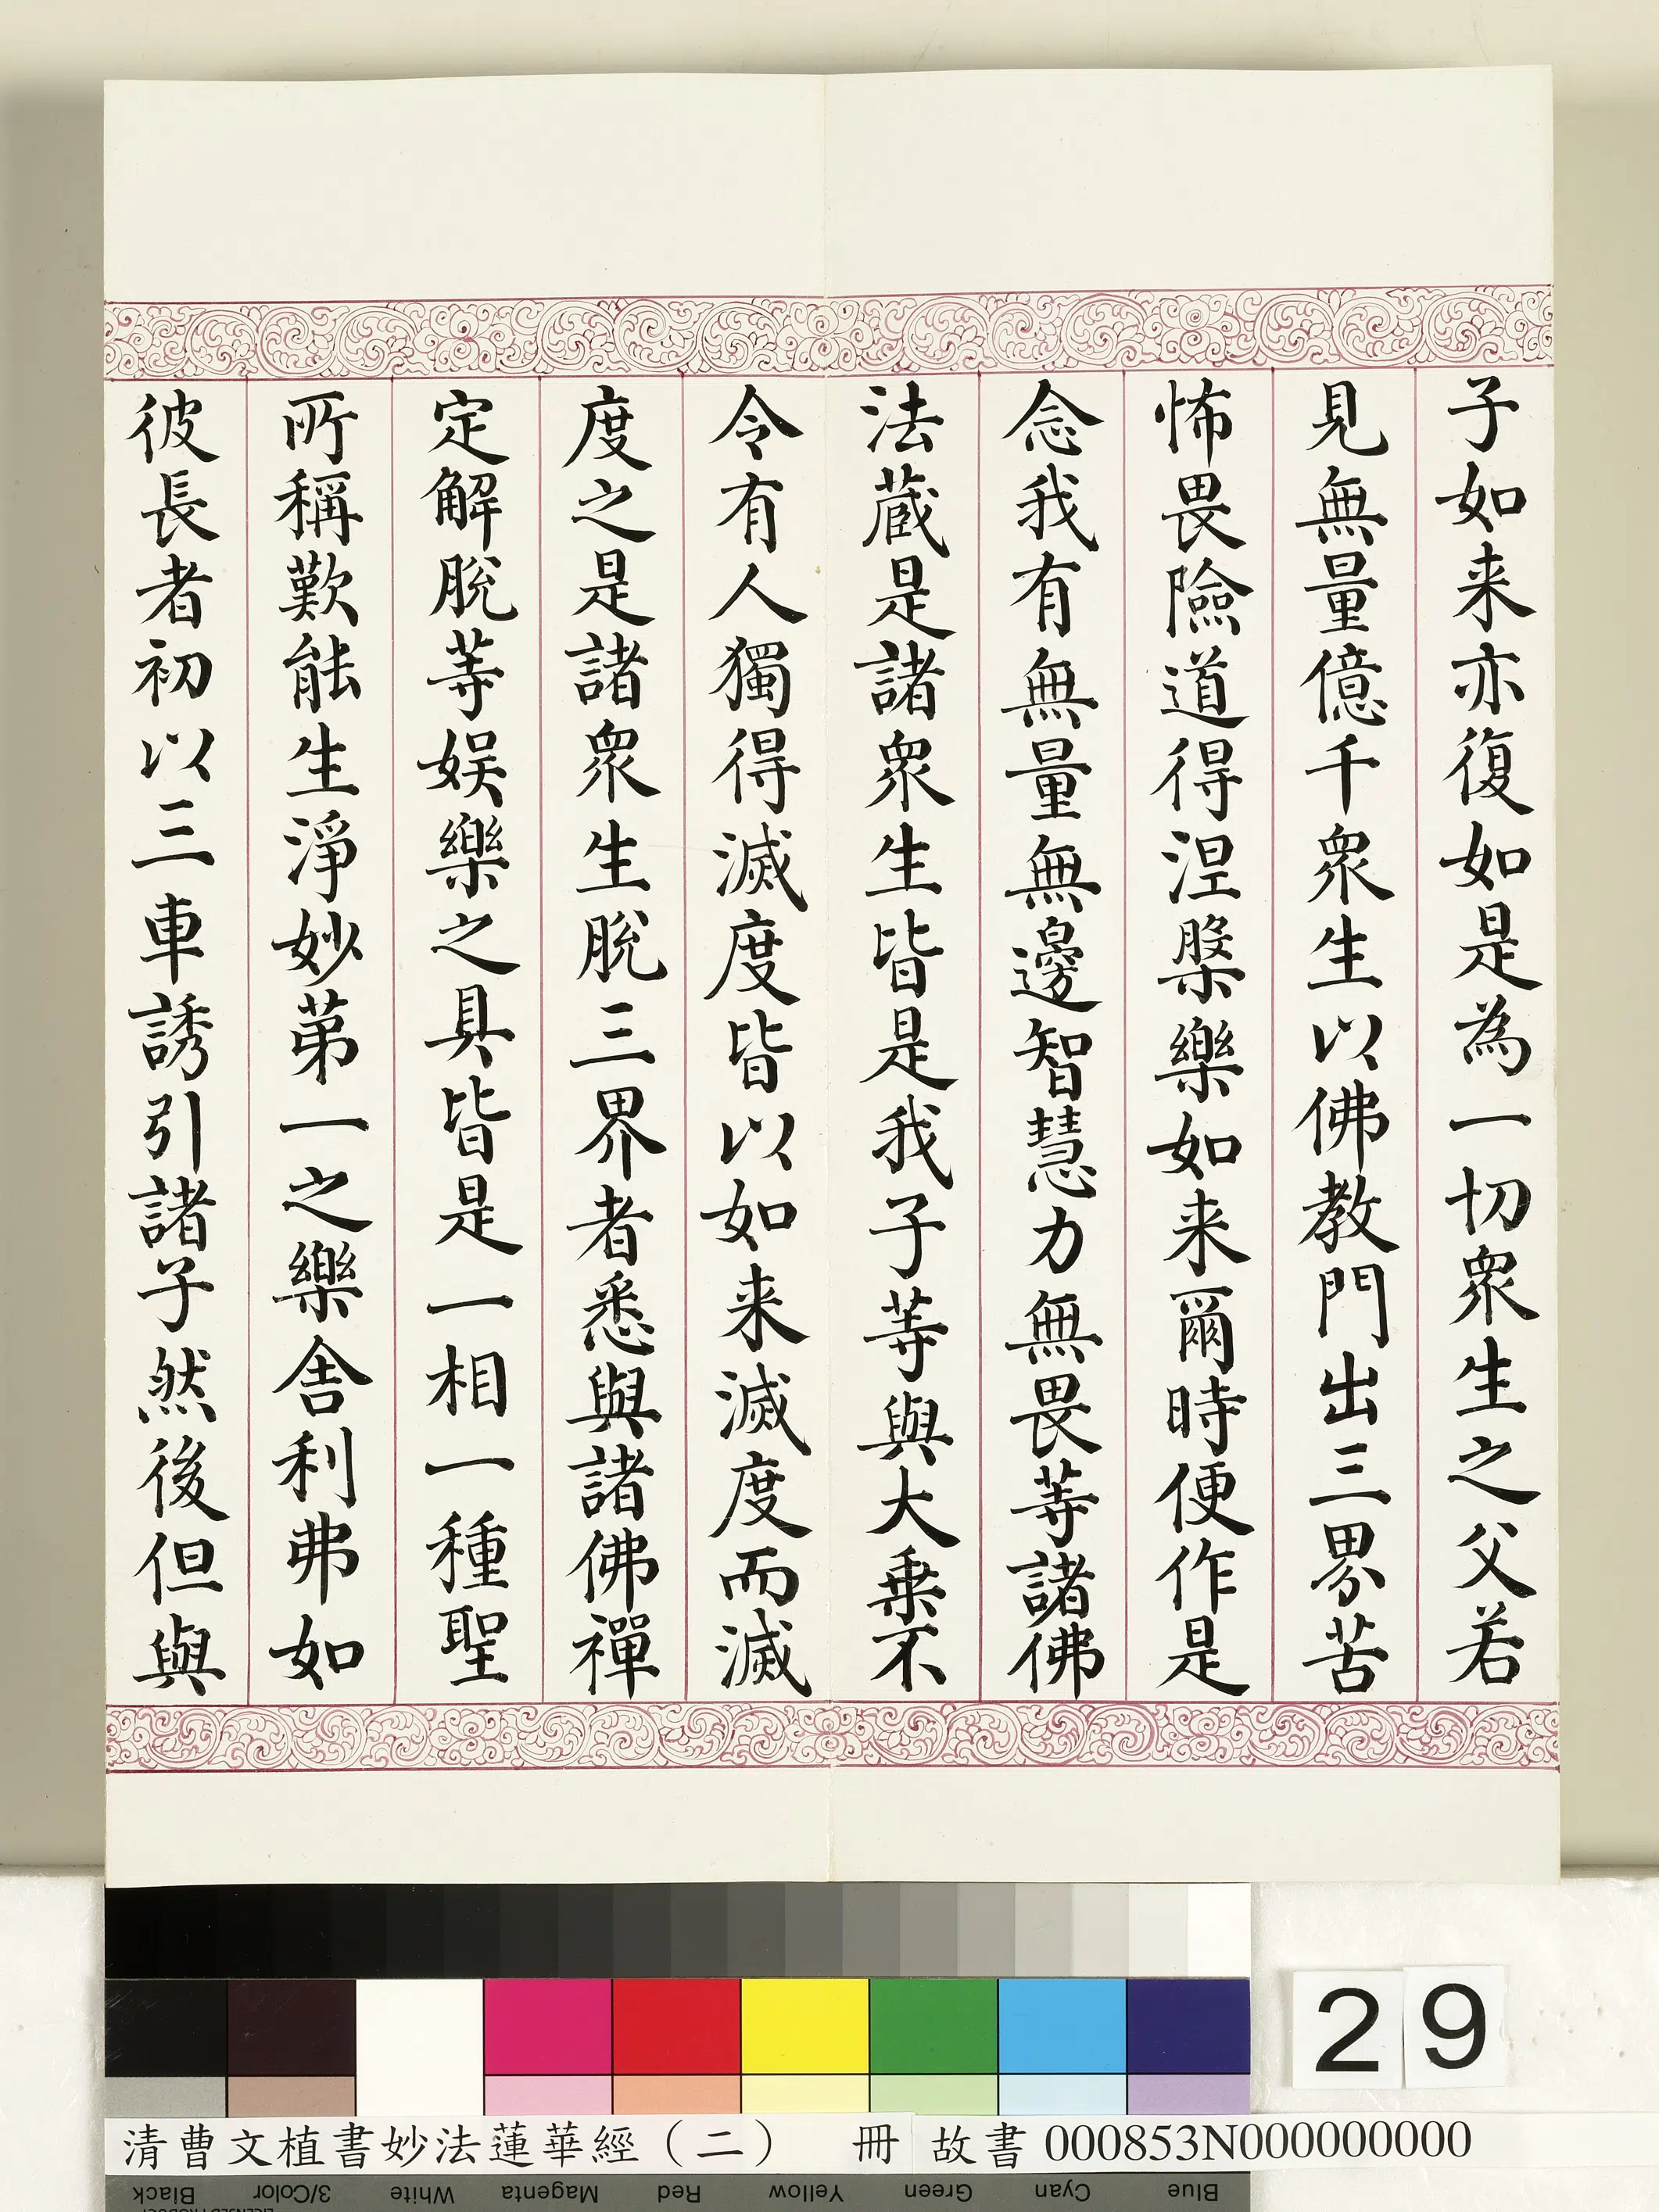 子如来亦復如是為一切衆生之父若
見無量億千衆生以佛教門出三界苦
怖畏險道得涅槃樂如来爾時便作是
念我有無量無邊智慧力無畏等諸佛
法藏是諸衆生皆是我子等與大乗不
令有人獨得滅度皆以如来滅度而滅
度之是諸衆生脫三界者悉與諸佛禪
定解脫等娛樂之具皆是一相一種聖
所稱歎能生淨妙第一之樂舍利弗如
彼長者初以三車誘引諸子然後但與
29
清曹文植書妙法蓮華經（二） 冊 故書 000853N000000000
Black 3/Color White Magenta Red Yellow Green Cyan Blue